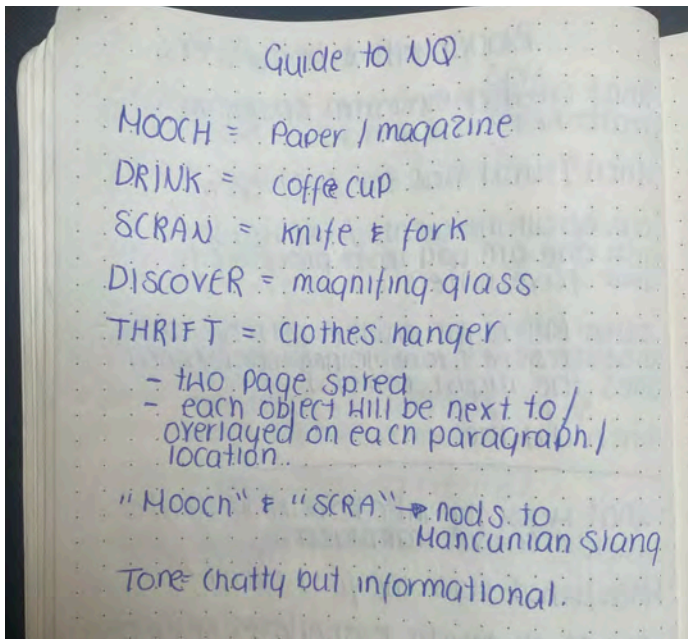 Guide to NQ
MOOCH = Paper / magazine
DRINK = coffee cup
SCRAN = knife & fork
DISCOVER = magnifing glass
THRIFT = clothes hanger
- two page spred
- each object will be next to /
overlayed on each paragraph /
location.
"Mooch" & "SCRA" → nods to
Mancunian slang
Tone = chatty but informational.